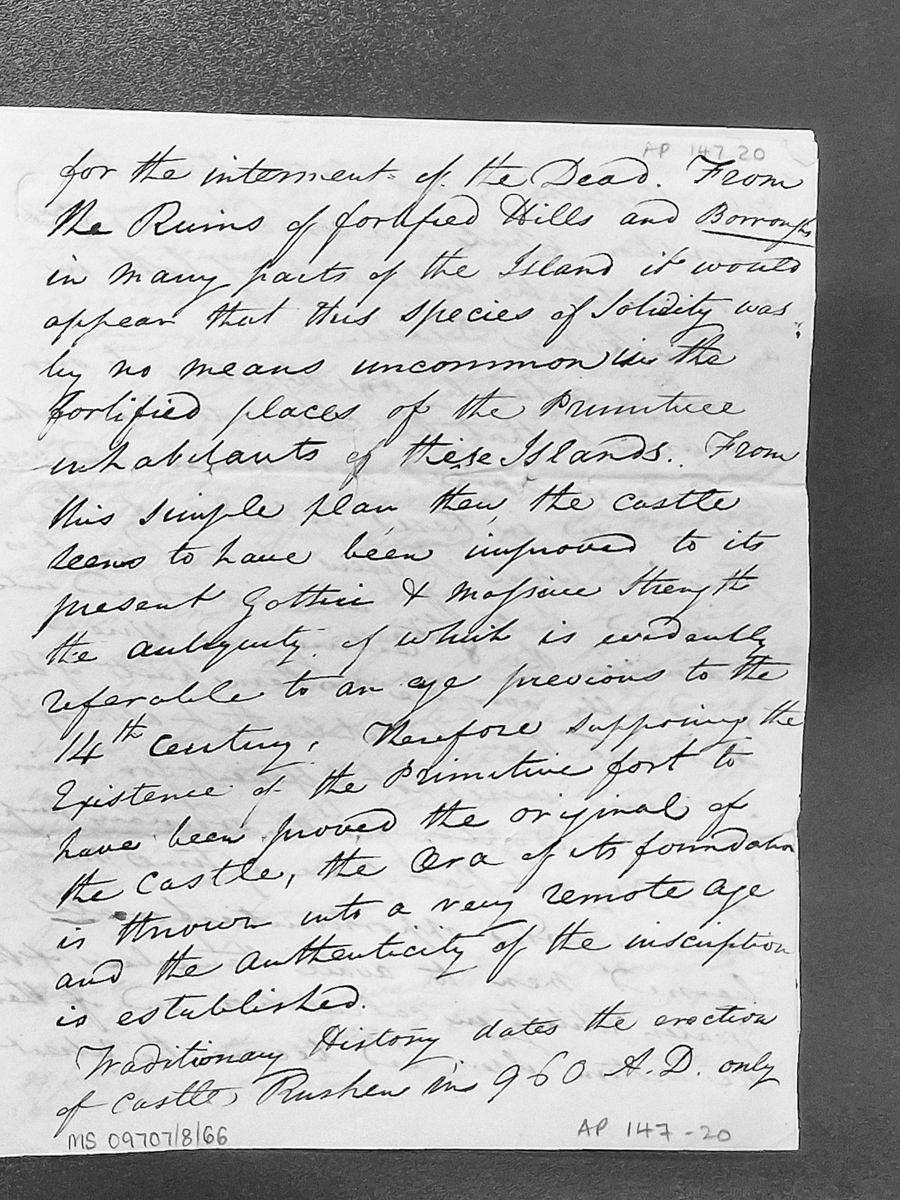 AP 147-20
for the interment of the Dead. From
the Ruins of fortified Hills and Borroughs
in many parts of the Island it would
appear that this species of Solidity was
by no means uncommon in the
fortified places of the Primitive
inhabitants of these Islands. From
this simple plan then, the castle
seems to have been improved to its
present Gothic & Massive Strength
the antiquity of which is evidently
referable to an age previous to the
14th Century. Therefore supposing the
Existence of the Primitive fort to
have been proved the original of
the Castle, the Æra of its foundation
is thrown into a very remote age
and the authenticity of the inscription
is established.
Traditionary History dates the erection
of Castle Rushen in 960 A.D. only
MS 09707/8/66
AP 147-20